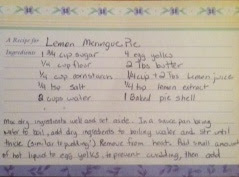 A Recipe for Lemon Meringue Pie
Ingredients: 1 3/4 cup sugar 4 egg yolks
1/4 cup flour 2 tbs butter
1/4 cup cornstarch 1/4 cup + 2 tbs lemon juice
1/4 tsp salt 1/4 tsp lemon extract
2 cups water 1 Baked pie shell
Mix dry ingredients well and set aside. In a sauce pan bring
water to boil, add dry ingredients to boiling water and stir until
thick (similar to pudding). Remove from heat. Add small amount
of hot liquid to egg yolks, to prevent curdling, then add